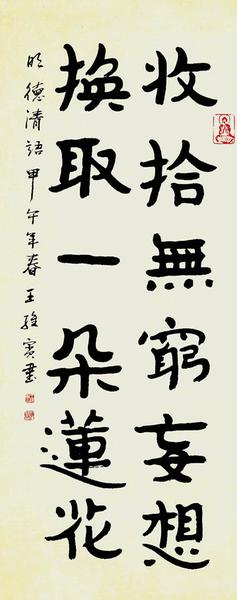 收拾無窮妄想
換取一朵蓮花
明德清語甲午年春王雅賓書